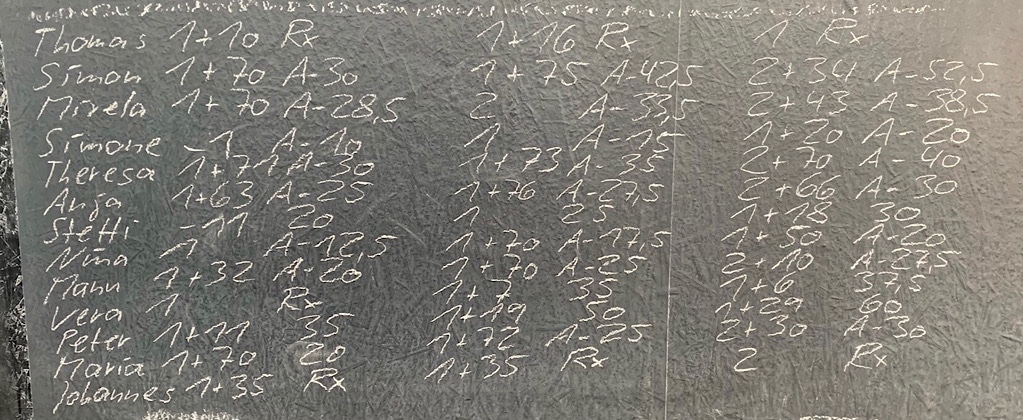 Thomas 1+10 Rx 1+16 Rx 1 Rx
Simon 1+70 A-30 1+75 A-42,5 2+34 A-52,5
Mirela 1+70 A-28,5 2 A-33,5 2+43 A-38,5
Simone -1 A-10 1 A-15 1+20 A-20
Theresa 1+71 A-30 1+73 A-35 2+70 A-40
Anja 1+63 A-25 1+76 A-27,5 2+66 A-30
Steffi -11 20 1 25 1+18 30
Nina 1 A-12,5 1+70 A-17,5 1+50 A-20
Manu 1+32 A-20 1+70 A-25 2+10 A-27,5
Vera 1 Rx 1+7 35 1+6 37,5
Peter 1+11 35 1+19 50 1+29 60
Maria 1+70 20 1+72 A-25 2+30 A-30
Johannes 1+35 Rx 1+35 Rx 2 Rx